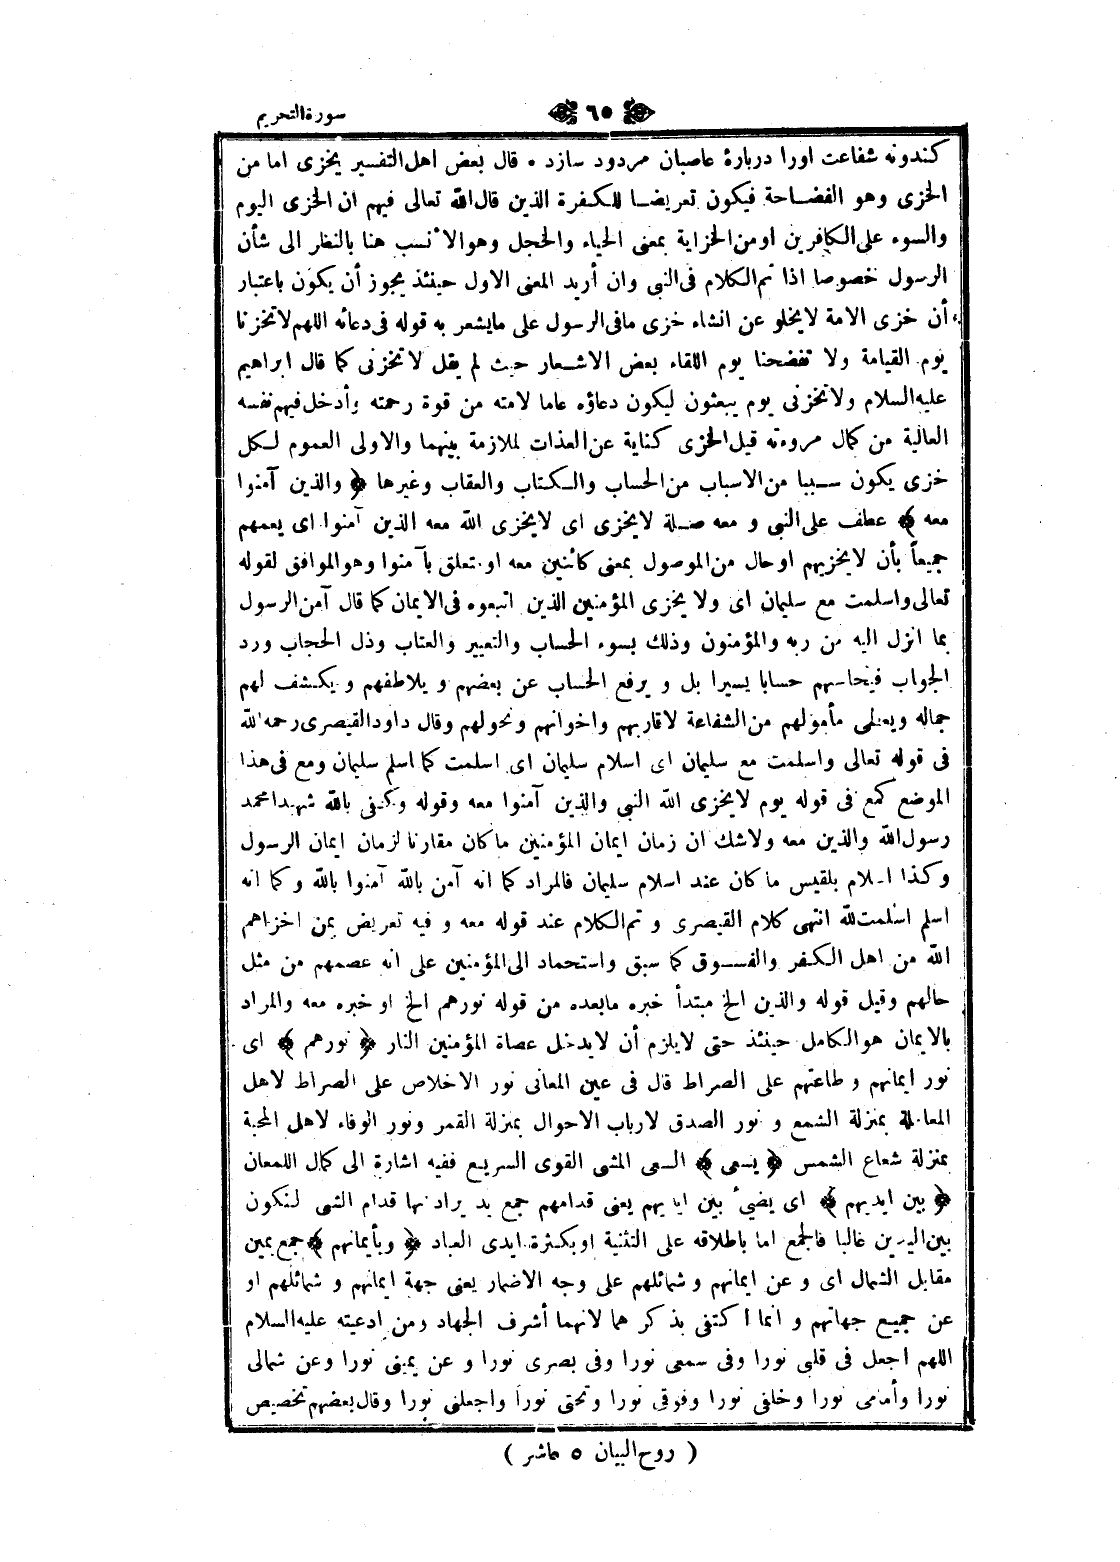 سورة التحريم
٦٥
كندونه شفاعت اورا دربارهٔ عاصيان مردود سازد • قال بعض اهل التفسير يخزى اما من
الخزى وهو الفضاحة فيكون تعريضا للكفرة الذين قال الله تعالى فيهم ان الخزى اليوم
والسوء على الكافرين او من الخزاية بمعنى الحياء والخجل وهو الأنسب هنا بالنظر الى شأن
الرسول خصوصا اذا تم الكلام فى النبى وان أريد المعنى الاول حينئذ يجوز أن يكون باعتبار
أن خزى الامة لا يخلو عن انشاء خزى ما فى الرسول على ما يشعر به قوله فى دعائه اللهم لا تخزنا
يوم القيامة ولا تفضحنا يوم اللقاء بعض الاشعار حيث لم يقل لا تخزنى كما قال ابراهيم
عليه السلام ولا تخزنى يوم يبعثون ليكون دعاؤه عاما لامته من قوة رحمته وأدخل فيهم نفسه
العالية من كمال مروءته قيل الخزى كناية عن العذاب لملازمة بينهما والاولى العموم لكل
خزى يكون سببا من الاسباب من الحساب والكتاب والعقاب وغيرها ﴿ والذين آمنوا
معه ﴾ عطف على النبى و معه صلة لا يخزى اى لا يخزى الله معه الذين آمنوا اى يعمهم
جميعاً بأن لا يخزيهم او حال من الموصول بمعنى كائنين معه او متعلق بآمنوا وهو الموافق لقوله
تعالى واسلمت مع سليمان اى ولا يخزى المؤمنين الذين اتبعوه فى الايمان كما قال آمن الرسول
بما انزل اليه من ربه والمؤمنون وذلك بسوء الحساب والتعيير والعتاب وذل الحجاب ورد
الجواب فيحاسبهم حسابا يسيرا بل و يرفع الحساب عن بعضهم و يلاطفهم و يكشف لهم
جماله ويعطى مأمولهم من الشفاعة لاقاربهم واخوانهم ونحولهم وقال داود القيصرى رحمه الله
فى قوله تعالى واسلمت مع سليمان اى اسلام سليمان اى اسلمت كما اسلم سليمان ومع فى هذا
الموضع كمع فى قوله يوم لا يخزى الله النبى والذين آمنوا معه وقوله وكفى بالله شهيدا محمد
رسول الله والذين معه ولاشك ان زمان ايمان المؤمنين ما كان مقارنا لزمان ايمان الرسول
وكذا اسلام بلقيس ما كان عند اسلام سليمان فالمراد كما انه آمن بالله آمنوا بالله و كما انه
اسلم اسلمت لله انتهى كلام القيصرى و تم الكلام عند قوله معه و فيه تعريض بمن اخزاهم
الله من اهل الكفر والفسوق كما سبق واستحماد الى المؤمنين على انه عصمهم من مثل
حالهم وقيل قوله والذين الخ مبتدأ خبره ما بعده من قوله نورهم الخ او خبره معه والمراد
بالايمان هو الكامل حينئذ حتى لا يلزم أن لا يدخل عصاة المؤمنين النار ﴿ نورهم ﴾ اى
نور ايمانهم و طاعتهم على الصراط قال فى عين المعانى نور الاخلاص على الصراط لاهل
المعاملة بمنزلة الشمع و نور الصدق لارباب الاحوال بمنزلة القمر ونور الوفاء لاهل المحبة
بمنزلة شعاع الشمس ﴿ يسعى ﴾ السعى المشى القوى السريع ففيه اشارة الى كمال اللمعان
﴿ بين ايديهم ﴾ اى يضىء بين ايديهم يعنى قدامهم جمع يد يراد بها قدام الشىء لتكون
بين اليدين غالبا فالجمع اما باطلاقه على التثنية او بكثرة ايدى العباد ﴿ وبأيمانهم ﴾ جمع يمين
مقابل الشمال اى و عن ايمانهم و شمائلهم على وجه الاضمار يعنى جهة ايمانهم و شمائلهم او
عن جميع جهاتهم و انما اكتفى بذكر هما لانهما أشرف الجهاد ومن ادعيته عليه السلام
اللهم اجعل فى قلبى نورا وفى سمعى نورا وفى بصرى نورا و عن يمينى نورا وعن شمالى
نورا وأمامى نورا وخلفى نورا وفوقى نورا وتحتى نورا واجعلنى نورا وقال بعضهم تخصيص
( روح البيان ٥ عاشر )